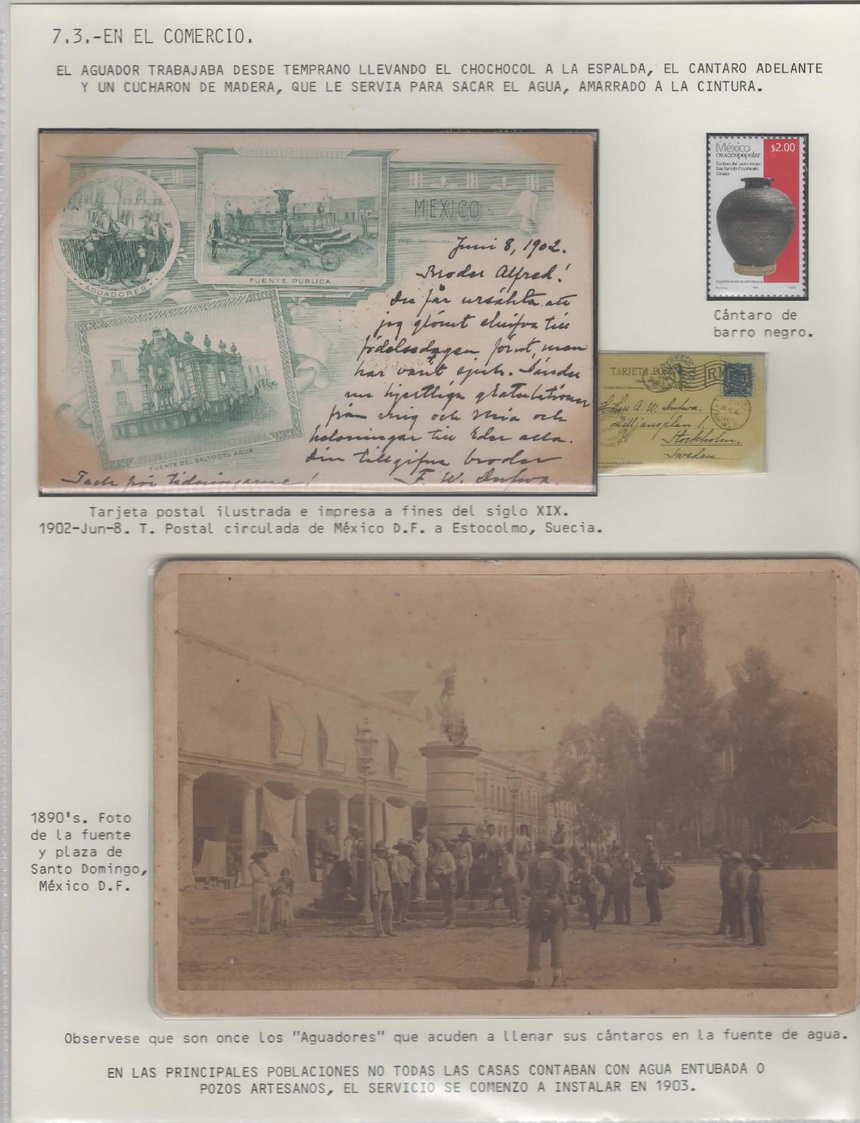 7.3.-EN EL COMERCIO.
EL AGUADOR TRABAJABA DESDE TEMPRANO LLEVANDO EL CHOCHOCOL A LA ESPALDA, EL CANTARO ADELANTE
Y UN CUCHARON DE MADERA, QUE LE SERVIA PARA SACAR EL AGUA, AMARRADO A LA CINTURA.
AGUADORES
FUENTE PUBLICA
MEXICO
FUENTE DEL SALTO DEL AGUA
Juni 8, 1902.
Broder Alfred!
Du får ursäkta att
jag glömt skrifva till
födelsedagen förut men
har varit sjuk. Sänder
nu hjertliga gratulationer
från mig och Mia och
helsningar till Eder alla.
Din tillgifne broder
F. W.
Tack för tidningarne!
México
creación popular
$2.00
Cántaro de
barro negro.
TARJETA
A. W.
Lilljansplan 1
Stockholm.
Sweden.
Tarjeta postal ilustrada e impresa a fines del siglo XIX.
1902-Jun-8. T. Postal circulada de México D.F. a Estocolmo, Suecia.
1890's. Foto
de la fuente
y plaza de
Santo Domingo,
México D.F.
Observese que son once los "Aguadores" que acuden a llenar sus cántaros en la fuente de agua.
EN LAS PRINCIPALES POBLACIONES NO TODAS LAS CASAS CONTABAN CON AGUA ENTUBADA O
POZOS ARTESANOS, EL SERVICIO SE COMENZO A INSTALAR EN 1903.